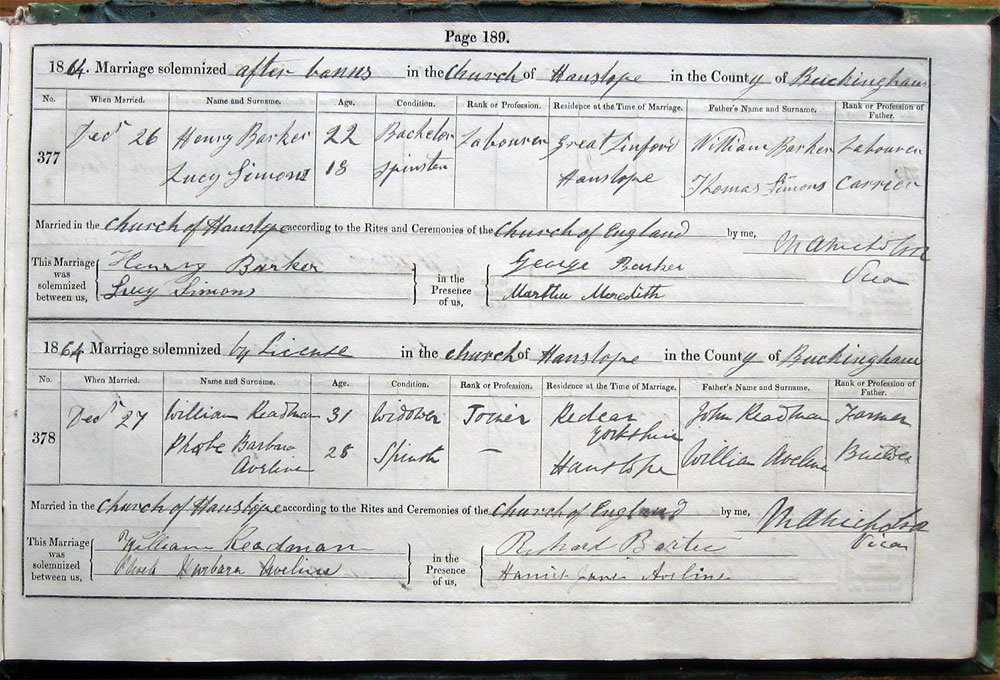 Page 189.
1864. Marriage solemnized after banns in the Church of Hanslope in the County of Buckingham
No. When Married. Name and Surname. Age. Condition. Rank or Profession. Residence at the Time of Marriage. Father's Name and Surname. Rank or Profession of Father.
377 Decr 26 Henry Barker 22 Bachelor Labourer Great Linford William Barker Labourer
Lucy Simons 18 Spinster Hanslope Thomas Simons Carrier
Married in the Church of Hanslope according to the Rites and Ceremonies of the Church of England by me,
Vicar
This Marriage was solemnized between us, Henry Barker
Lucy Simons
in the Presence of us, George Barker
Martha Meredith
1864. Marriage solemnized by License in the Church of Hanslope in the County of Buckingham
No. When Married. Name and Surname. Age. Condition. Rank or Profession. Residence at the Time of Marriage. Father's Name and Surname. Rank or Profession of Father.
378 Decr 27 William Readman 31 Widower Joiner Redcar Yorkshire John Readman Farmer
Phoebe Barbara Aveline 28 Spinster — Hanslope William Aveline Builder
Married in the Church of Hanslope according to the Rites and Ceremonies of the Church of England by me,
Vicar
This Marriage was solemnized between us, William Readman
Phoebe Barbara Aveline
in the Presence of us, Richard
Aveline